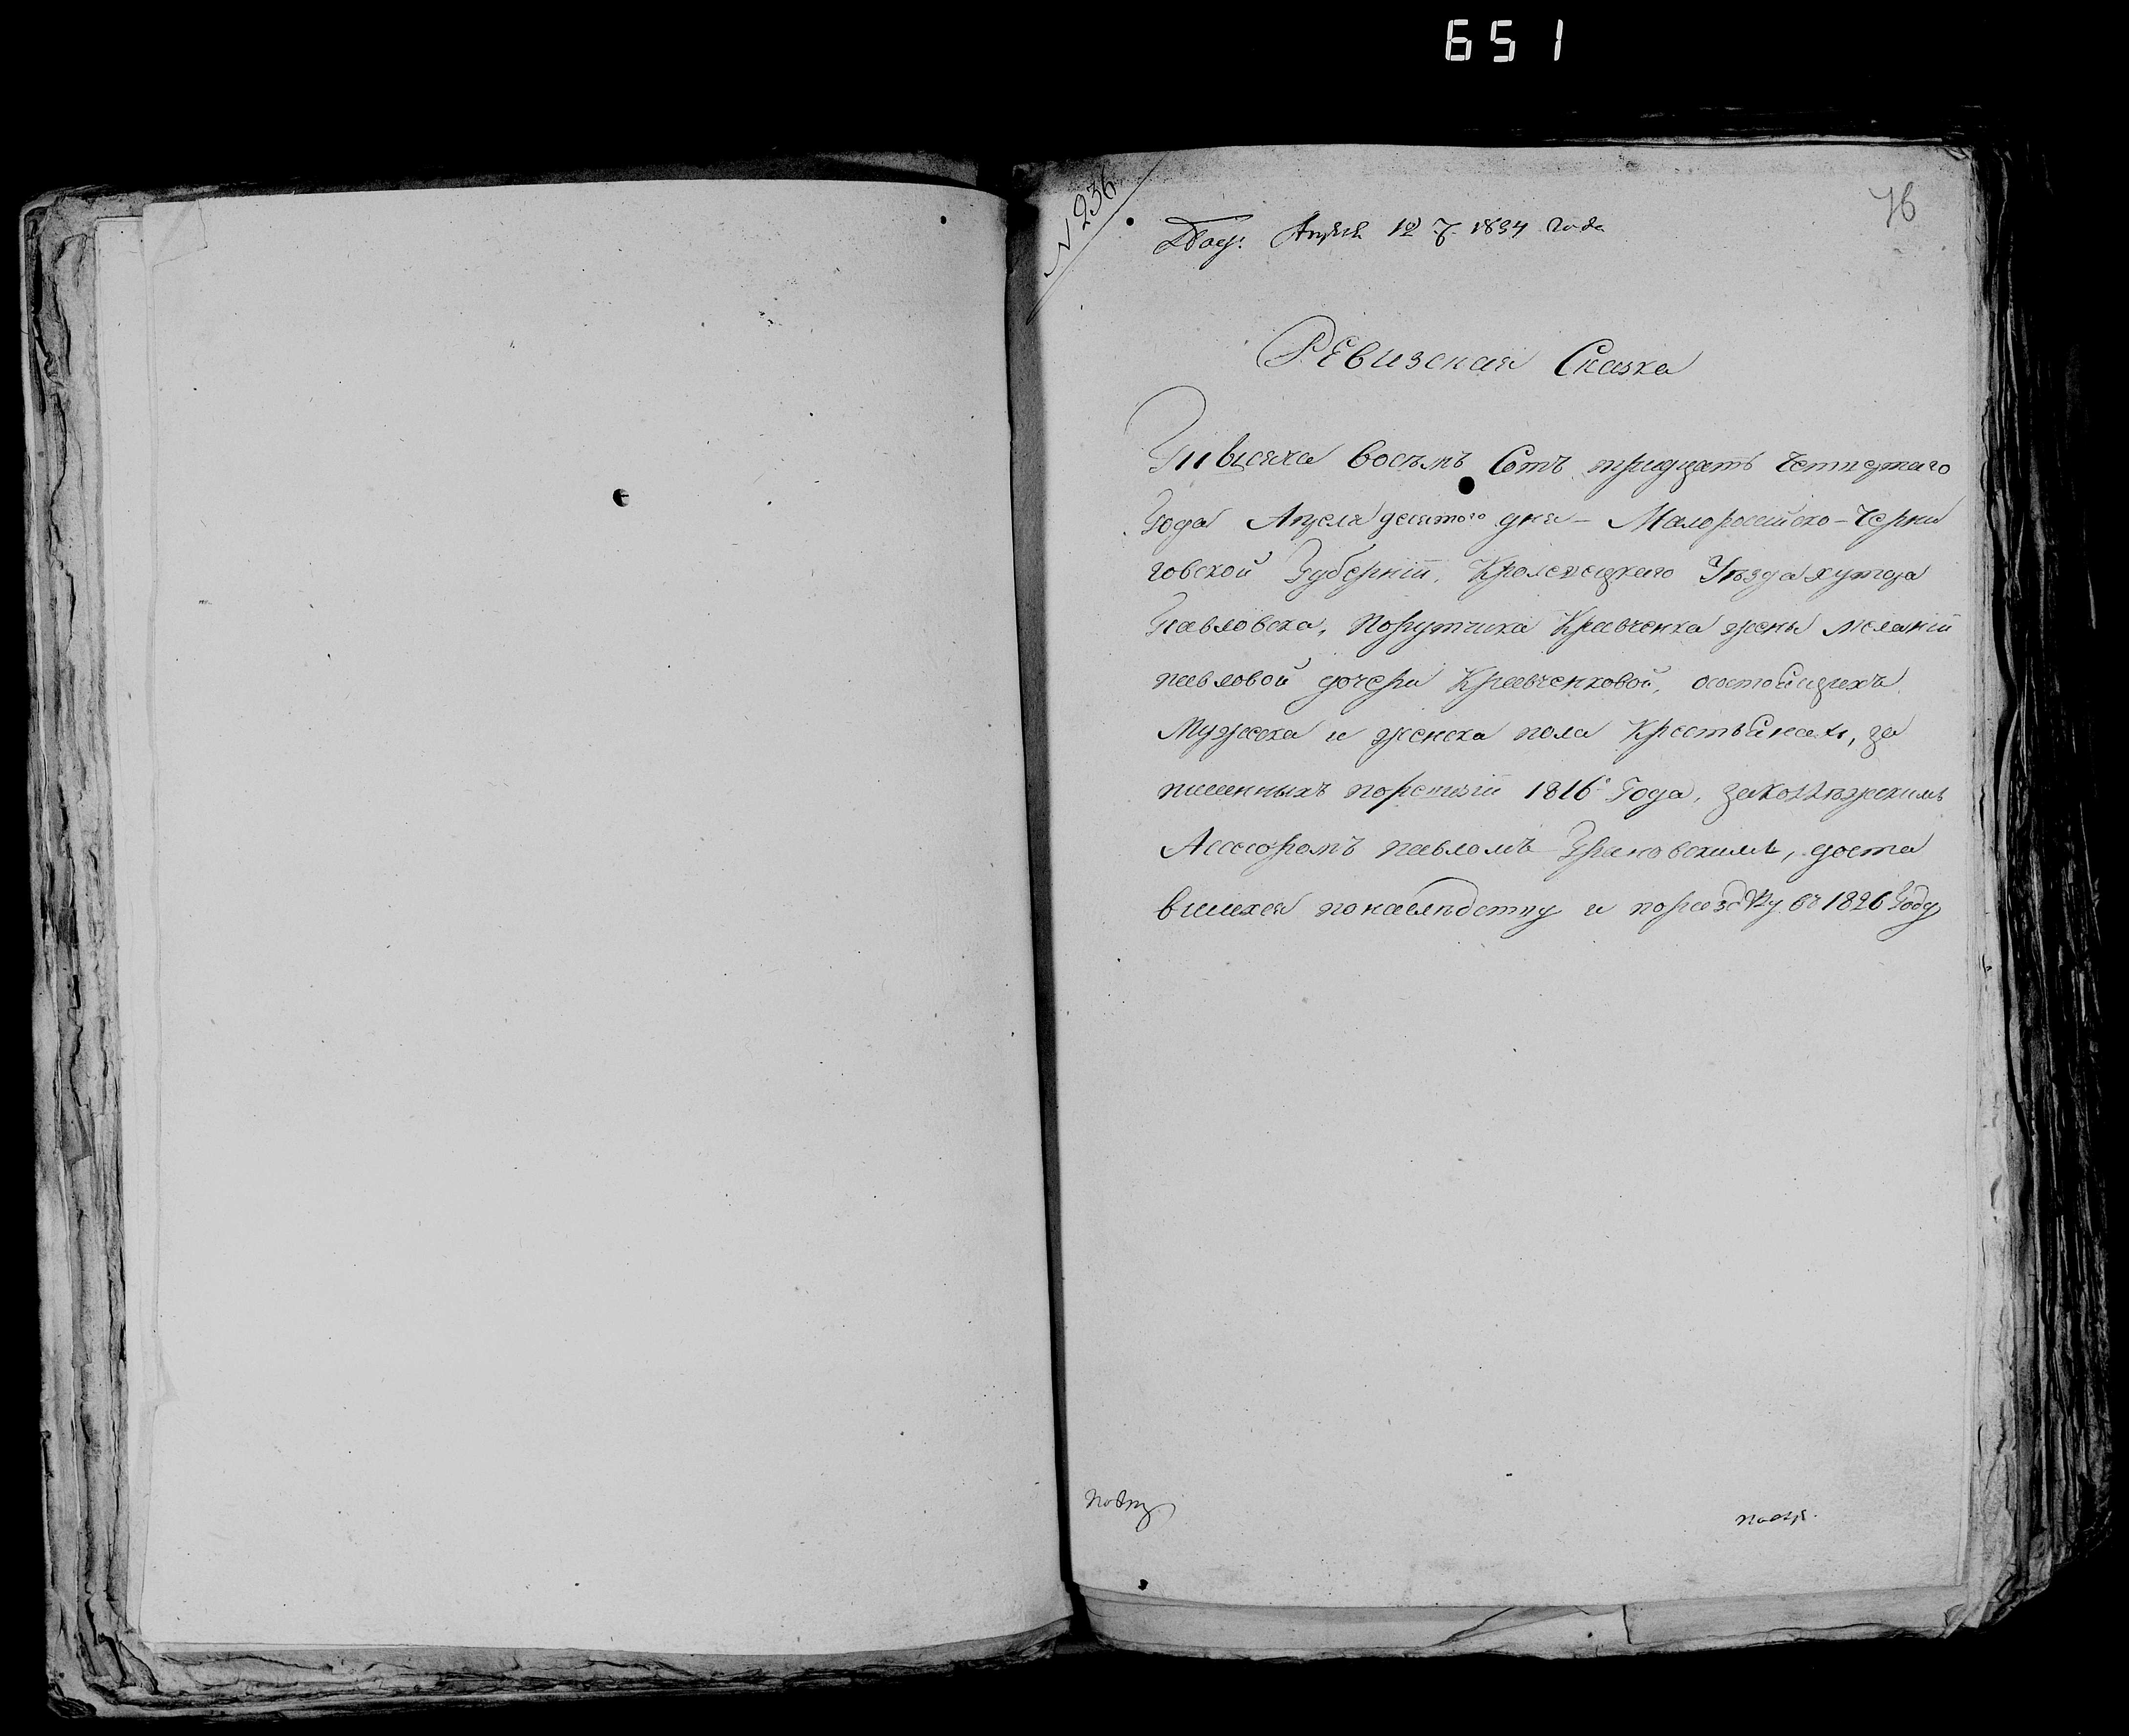 651
76
N 236
Апреля 10 1834 года
Ревизская Сказка
Тивсяха восемъ Сотъ тридцать Четвертаго
Года Апреля десятого дня – Малоросейско – Черни
говской Губерніи, Кролевецкаго Уѣзда хутора
Павловска, Порутчика Кравченка жены Меланіи
павловой дочери Кравченковой, осостоящихъ
Мужеска и женска пола Крестьянахъ, за
писанныхъ поревизіи 1816 Года, заколлѣжскимъ
Асесоромъ павломъ Грановскимъ, доста
вшихся понаслѣдству и поразделу въ 1826 Году